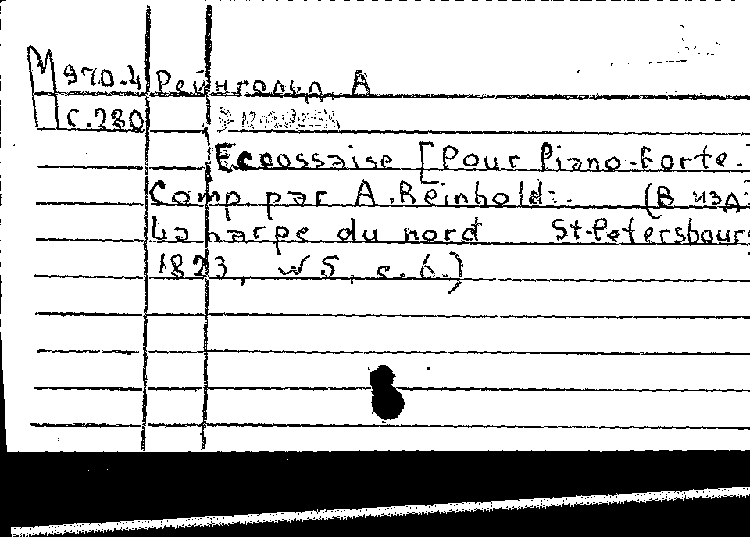 М 970.4 Рейнгольд, А
С.280
Ecossaise [Pour Piano-Forte.
Comp. par A. Reinhold. (В изд
La harpe du nord St-Petersbourg
1823, № 5, с. 6.)